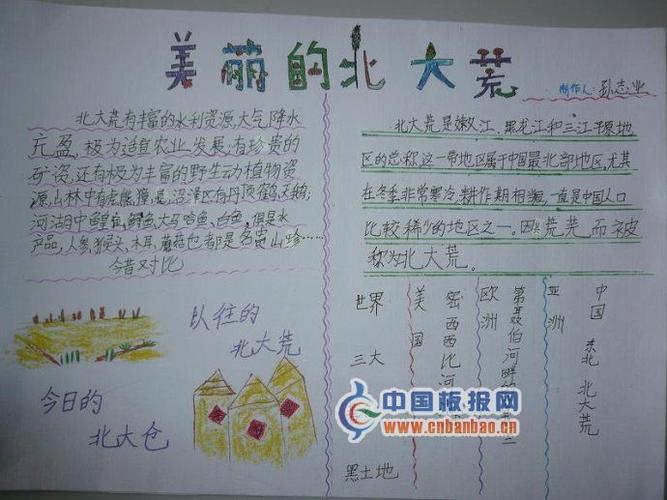 美丽的北大荒
制作人:孙志业
北大荒有丰富的水利资源,大气降水
充盈,极为适宜农业发展,有珍贵的
矿资,还有极为丰富的野生动植物资
源,山林中有虎、熊、
沼泽区有丹顶鹤,天鹅;
河湖中鳇鱼,鲟鱼,大马哈鱼,白鱼,俱是水
产品,人参,猴头,木耳,蘑菇也都是名贵山珍……
今昔对比
以往的
北大荒
今日的
北大仓
北大荒是嫩江、黑龙江和三江平原地
区的总称这一带地区属于中国最北部地区,尤其
在冬季非常寒冷,耕作期相
一直是中国人口
比较稀少的地区之一。因
荒芜而被
称为北大荒。
世界三大黑土地
美国密西西比河
欧洲第聂伯河畔的
亚洲
中国东北北大荒
中国板报网
www.cnbanbao.cn